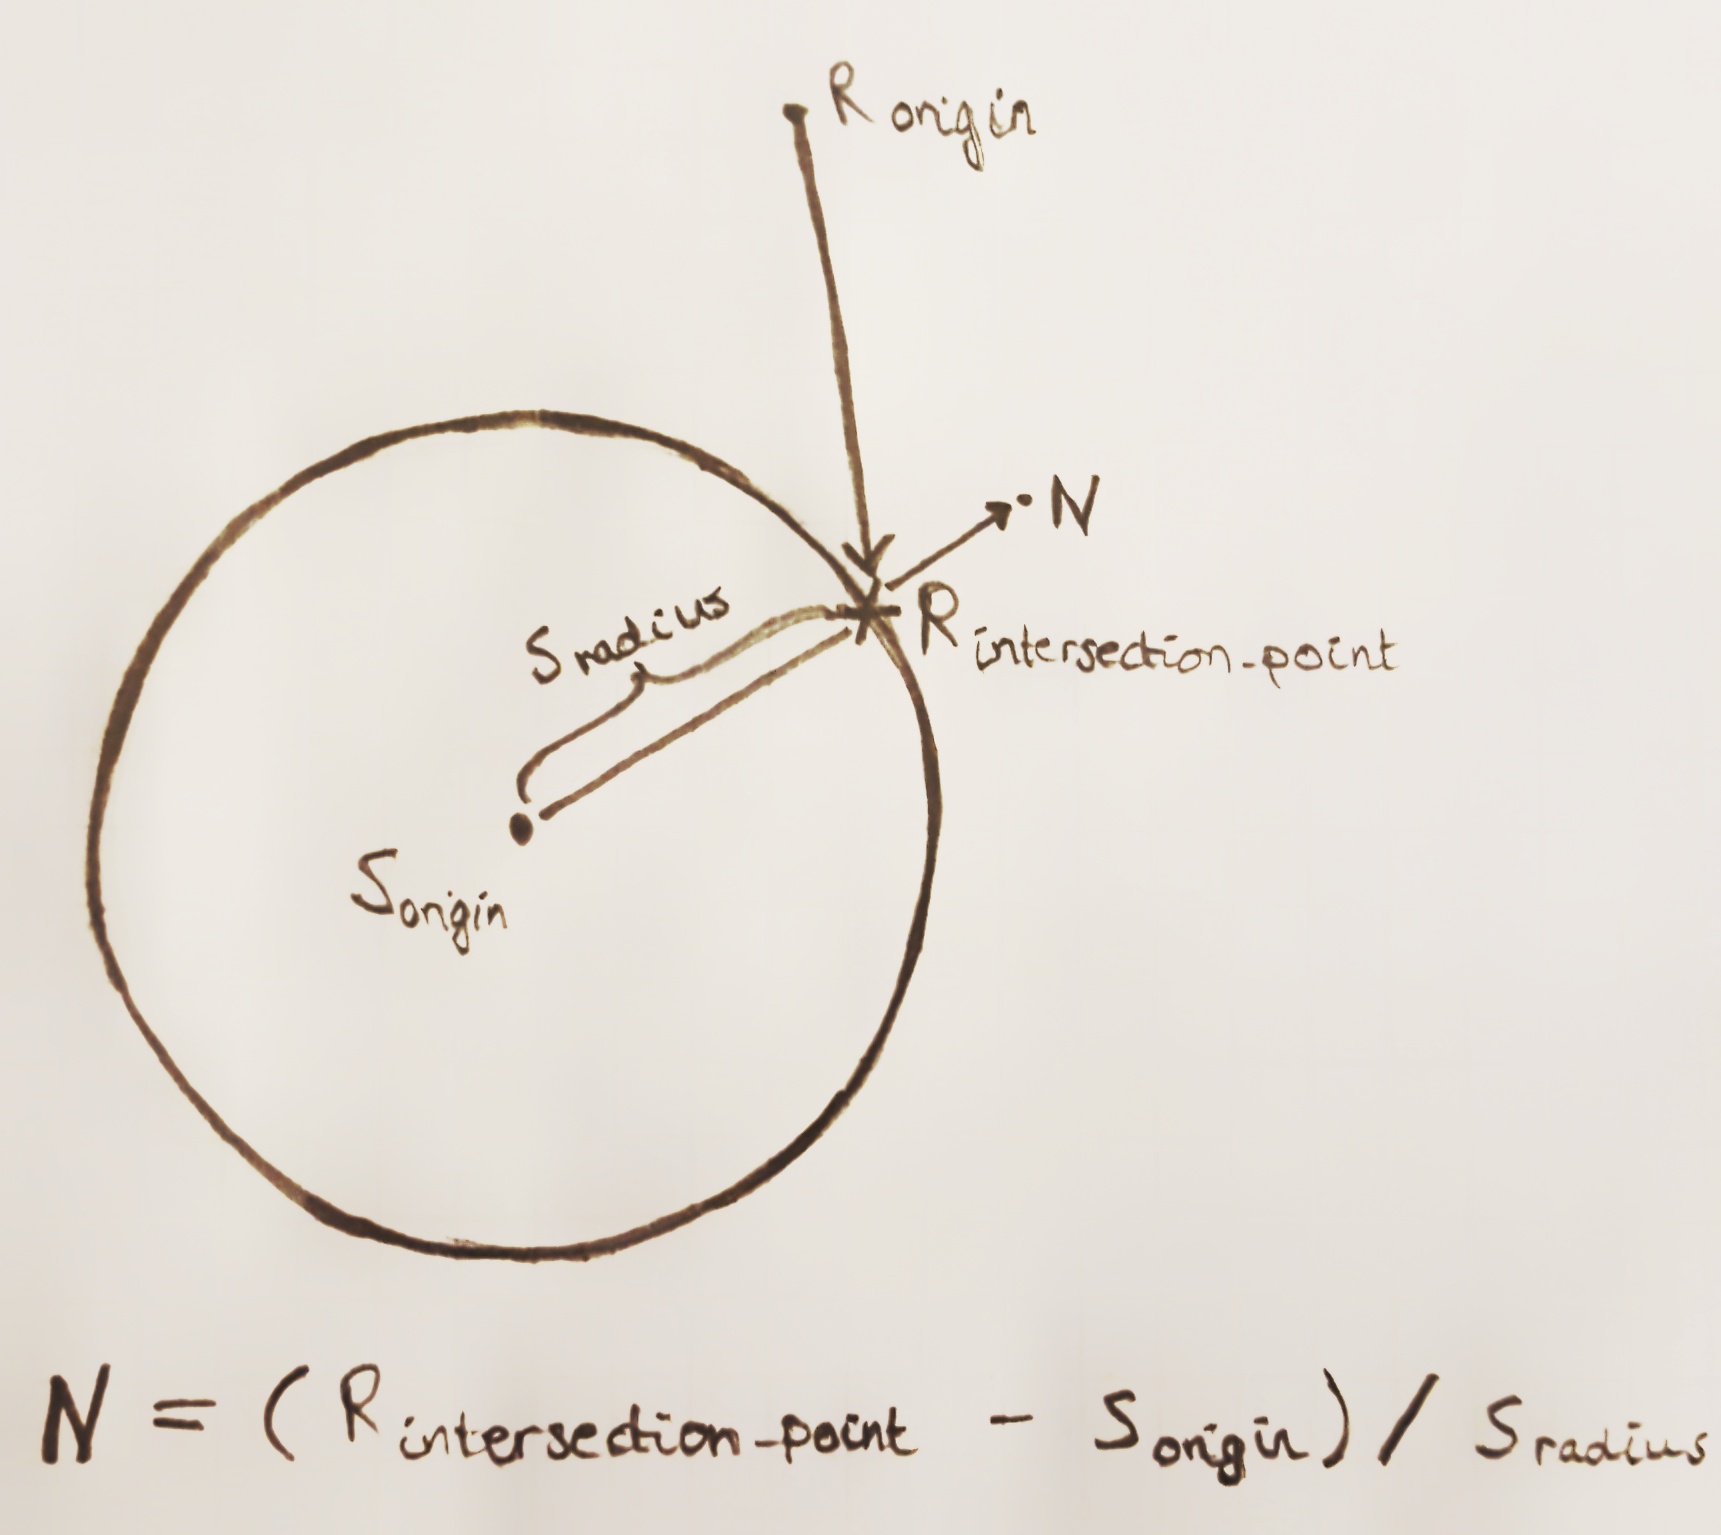 R origin
N
S radius
R intersection-point
S origin
N = (R intersection-point - S origin) / S radius